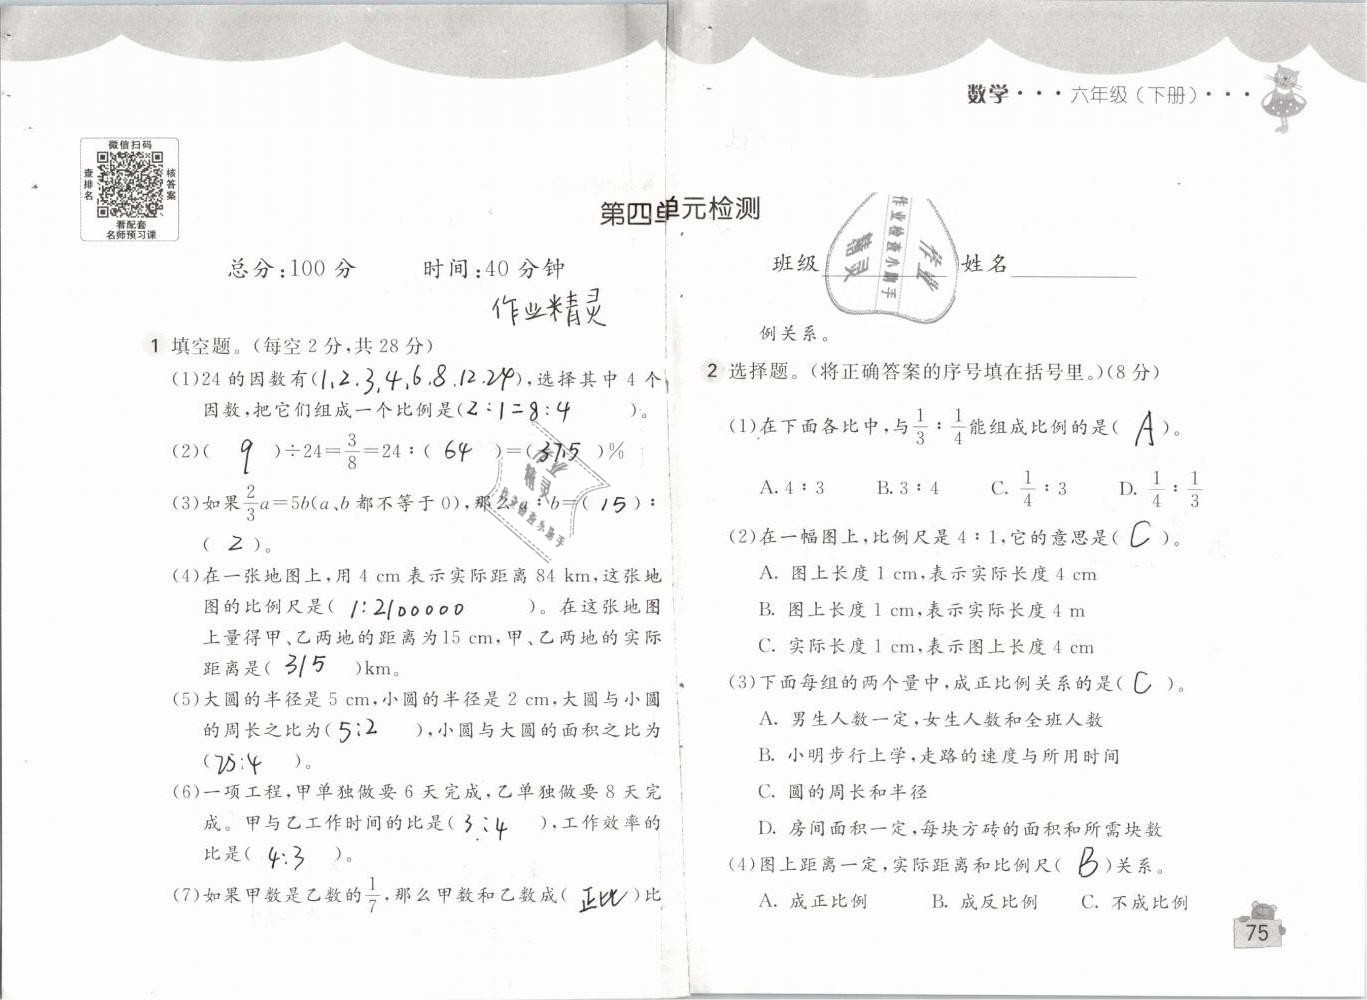 数学···六年级(下册)···
微信扫码
查排名
核答案
看配套
名师预习课
第四单元检测
总分:100 分 时间:40 分钟 班级 姓名
作业精灵
作业检查小助手
作业
精灵
1 填空题。(每空 2 分,共 28 分)
(1)24 的因数有(1,2,3,4,6,8,12,24),选择其中 4 个
因数,把它们组成一个比例是(2:1=8:4)。
(2)( 9 )÷24=3/8=24:( 64 )=(37.5)%
(3)如果2/3a=5b(a、b 都不等于 0),那么a:b=( 15 ):
( 2 )。
(4)在一张地图上,用 4 cm 表示实际距离 84 km,这张地
图的比例尺是( 1:2100000 )。在这张地图
上量得甲、乙两地的距离为15 cm,甲、乙两地的实际
距离是( 315 )km。
(5)大圆的半径是 5 cm,小圆的半径是 2 cm,大圆与小圆
的周长之比为( 5:2 ),小圆与大圆的面积之比为
(25:4 )。
(6)一项工程,甲单独做要 6 天完成,乙单独做要 8 天完
成。甲与乙工作时间的比是( 3:4 ),工作效率的
比是( 4:3 )。
(7)如果甲数是乙数的1/7,那么甲数和乙数成( 正比 )比
例关系。
2 选择题。(将正确答案的序号填在括号里。)(8 分)
(1)在下面各比中,与1/3:1/4能组成比例的是( A )。
A. 4:3 B. 3:4 C. 1/4:3 D. 1/4:1/3
(2)在一幅图上,比例尺是 4:1,它的意思是( C )。
A. 图上长度 1 cm,表示实际长度 4 cm
B. 图上长度 1 cm,表示实际长度 4 m
C. 实际长度 1 cm,表示图上长度 4 cm
(3)下面每组的两个量中,成正比例关系的是( C )。
A. 男生人数一定,女生人数和全班人数
B. 小明步行上学,走路的速度与所用时间
C. 圆的周长和半径
D. 房间面积一定,每块方砖的面积和所需块数
(4)图上距离一定,实际距离和比例尺( B )关系。
A. 成正比例 B. 成反比例 C. 不成比例
75